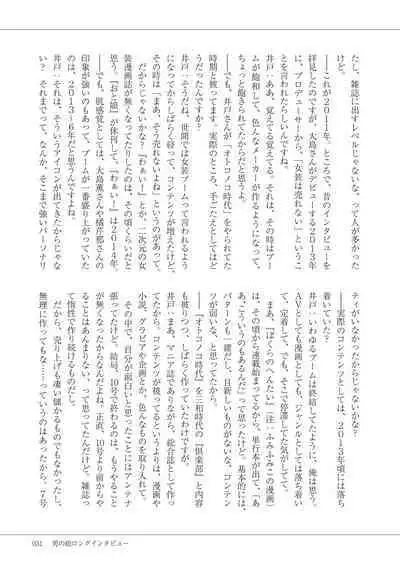 たし、雑誌に出すレベルじゃないな、って人が多かった
けど。
――これが2011年。ところで、昔のインタビューを
拝見したのですが、大島さんがデビューする2013年
に、プロデューサーから、「女装は売れない」というこ
とを言われたらしいんですね。
井戸：ああ、覚えてる覚えてる。それは、その時はブー
ムが飽和して、色んなメーカーが作るようになって、
ちょっと飽きられてたからだと思うよ。
――でも、井戸さんが『オトコノコ時代』をやられてた
時期と被ってます。実際のところ、手ごたえとしてはど
うだったんですか？
井戸：そうだね、世間では女装ブームって言われるよう
になってからしばらく経って、コンテンツが増えたけど、
その時は「まあ、そう売れないよね」というのがあって、
だからじゃないかな？『わぁい！』とか、二次元の女
装漫画誌が無くなってたりしたのは、その頃くらいだと
思う。『おと娘』が休刊して、『わぁい！』は2014年。
でも、肌感覚としては、大島薫さんや橘芹那さんの
印象が強いのもあって、ブームが一番盛り上がっていた
のは、2013～6年だと思うんですよね。
井戸：それは、そういうアイコンが出てきたからじゃな
い？　それまでって、なんか、そこまで強いパーソナリ
ティがいなかったからじゃないかな？
――実際のコンテンツとしては、2013年頃には落ち
着いていた？
井戸：いわゆるブームは終結してたように、俺は思う。
AVとしても漫画としても、ジャンルとしては落ち着い
て、定着して、でも、そこで停滞してた気がしてて。
まあ、『ぼくらのへんたい』（注：ふみふみこの漫画）
は、その頃から連載始まってるから、単行本が出て、「あ
あ、こういうのもあるんだ」って思ったけど。基本的には、
パターンも一躍だし、目新しいものがないな、コンテン
ツ的な、と思ってたから。
――『オトコノコ時代』を三和時代の『倶楽部』と内容
も被りつつ、しばらく作っていたわけですが。
井戸：まあ、マニア誌でありながら、総合誌として作っ
てたから、コンテンツが被ってくるというよりは、漫画や
小説、グラビアや企画とか、色んなものを取り入れて。
ところで、自分が面白いと思ったことにはアンテナ
張ってたけど、結局、10号で終わるのは、もうやること
が無くなったからなんだよね。正直、10号より前からや
ることはあんまりない、って思ってたんだけど、雑誌っ
て惰性で作り続けるものだし。
だから、売り上げも凄い儲かるものでもなかったし、
無理に作ってもな……っていうのはあったから、7号
051　男の娘ロングインタビュー